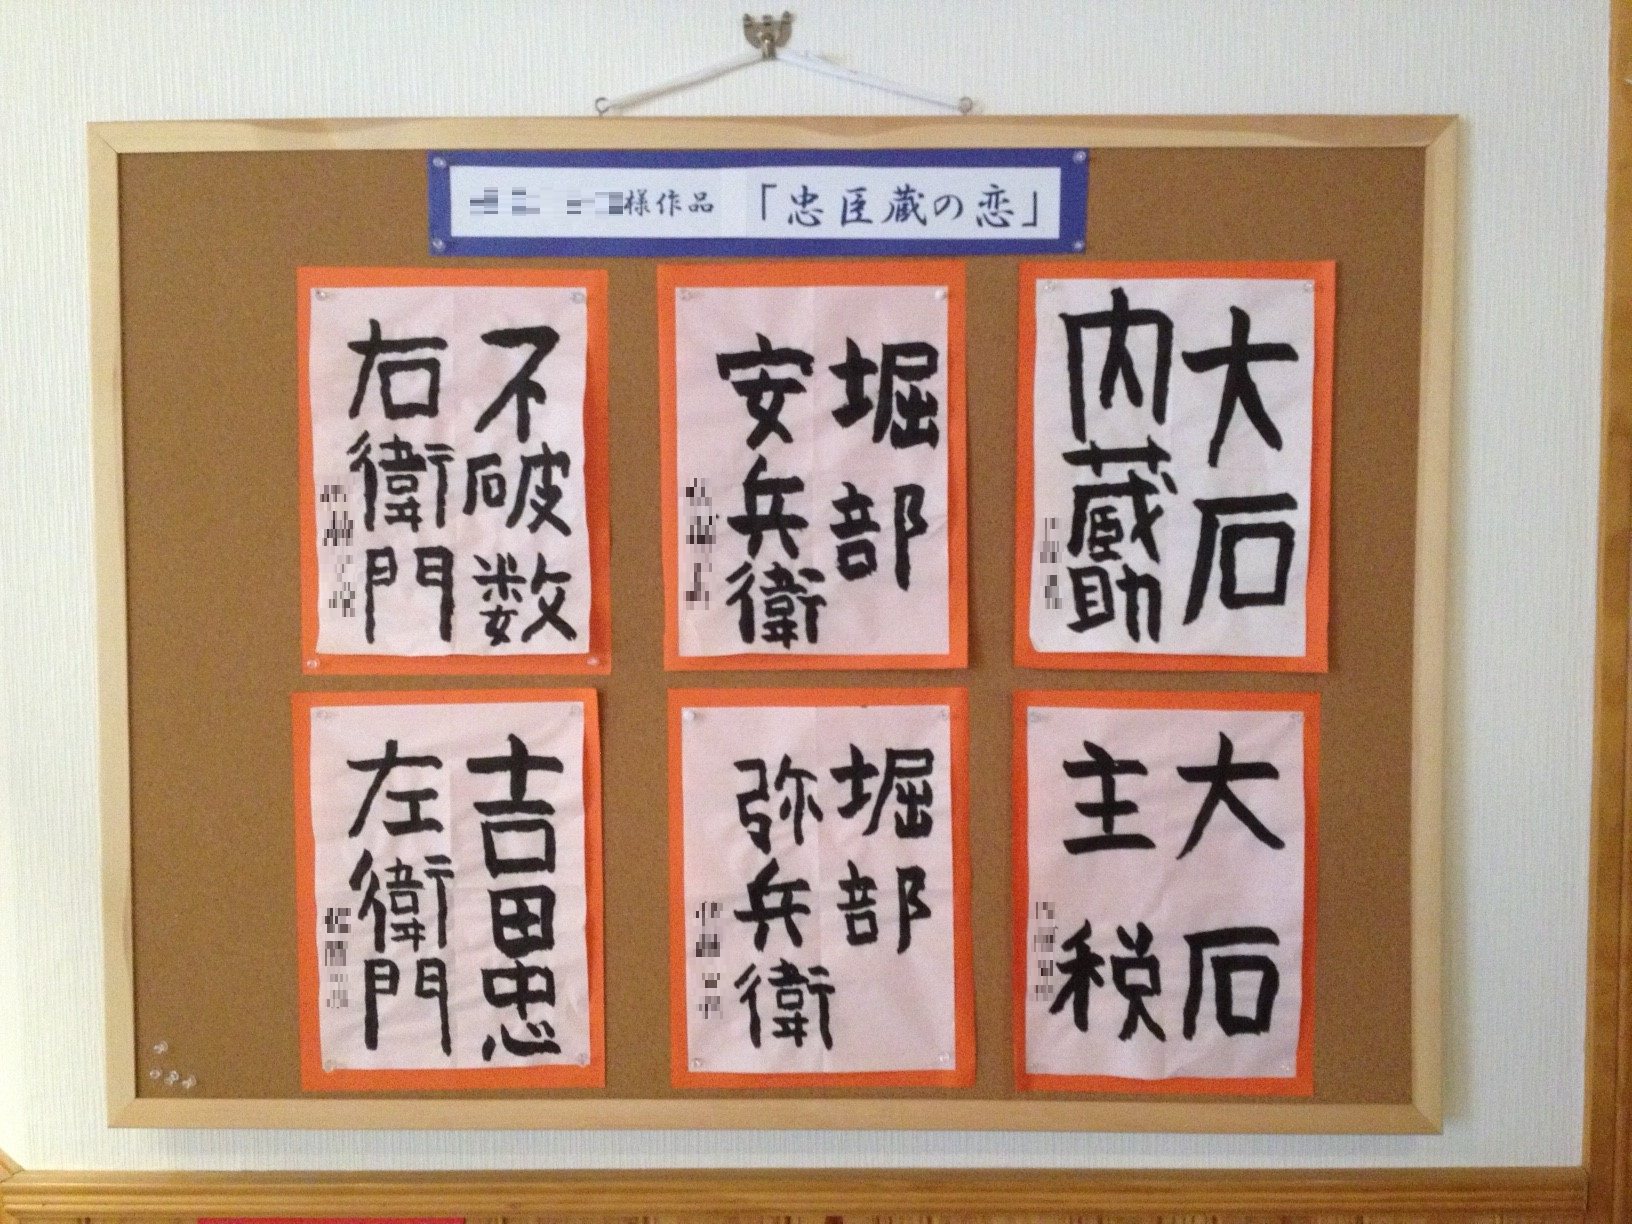 様作品 「忠臣蔵の恋」
大石
内蔵助
堀部
安兵衛
不破数
右衛門
大石
主税
堀部
弥兵衛
吉田忠
左衛門